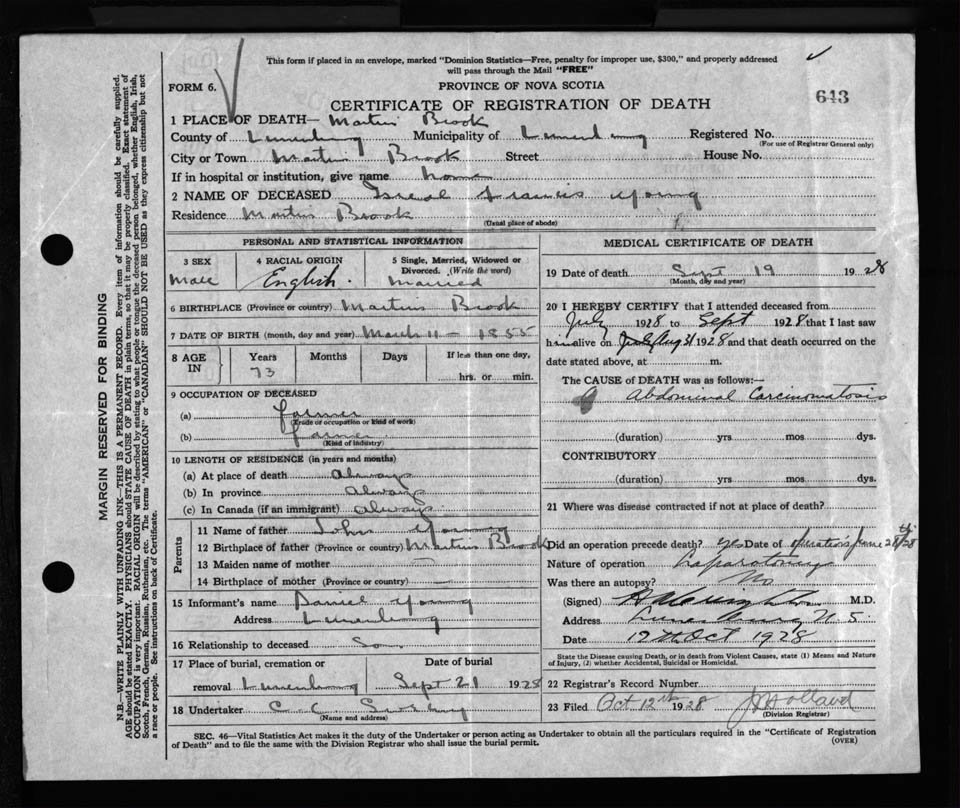 This form if placed in an envelope, marked "Dominion Statistics—Free, penalty for improper use, $300," and properly addressed
will pass through the Mail "FREE"
FORM 6.
PROVINCE OF NOVA SCOTIA
CERTIFICATE OF REGISTRATION OF DEATH
643
1 PLACE OF DEATH— Martins Brook
County of Lunenburg Municipality of Lunenburg Registered No.
(For use of Registrar General only)
City or Town Martins Brook Street House No.
If in hospital or institution, give name home
2 NAME OF DECEASED Francis Young
Residence Martins Brook
(Usual place of abode)
PERSONAL AND STATISTICAL INFORMATION
3 SEX 4 RACIAL ORIGIN 5 Single, Married, Widowed or
Divorced. (Write the word)
Male English. Married
6 BIRTHPLACE (Province or country) Martins Brook
7 DATE OF BIRTH (month, day and year) March 11 - 1855
8 AGE IN Years Months Days If less than one day,
73 hrs. or min.
9 OCCUPATION OF DECEASED
(a) farmer
(Trade or occupation or kind of work)
(b) farmer
(Kind of industry)
10 LENGTH OF RESIDENCE (in years and months)
(a) At place of death Always
(b) In province Always
(c) In Canada (if an immigrant) Always
Parents
11 Name of father John Young
12 Birthplace of father (Province or country) Martins Brook
13 Maiden name of mother —
14 Birthplace of mother (Province or country) —
15 Informant's name Daniel Young
Address Lunenburg
16 Relationship to deceased Son
17 Place of burial, cremation or Date of burial
removal Lunenburg Sept 21 1928
18 Undertaker C C
(Name and address)
MEDICAL CERTIFICATE OF DEATH
19 Date of death Sept 19 1928
(Month, day and year)
20 I HEREBY CERTIFY that I attended deceased from
July 1928 to Sept 1928 that I last saw
him alive on Aug 31 1928 and that death occurred on the
date stated above, at m.
The CAUSE OF DEATH was as follows:—
Abdominal Carcinomatosis
(duration) yrs mos dys.
CONTRIBUTORY
(duration) yrs mos dys.
21 Where was disease contracted if not at place of death?
Did an operation precede death? yes Date of operation June 28th/28
Nature of operation Laparotomy
Was there an autopsy? No
(Signed) M.D.
Address Lunenburg N S
Date 12th Oct 1928
State the Disease causing Death, or in death from Violent Causes, state (1) Means and Nature
of Injury, (2) whether Accidental, Suicidal or Homicidal.
22 Registrar's Record Number
23 Filed Oct 12th 1928 Holland
(Division Registrar)
SEC. 46—Vital Statistics Act makes it the duty of the Undertaker or person acting as Undertaker to obtain all the particulars required in the "Certificate of Registration
of Death" and to file the same with the Division Registrar who shall issue the burial permit.
(OVER)
MARGIN RESERVED FOR BINDING
N.B.—WRITE PLAINLY WITH UNFADING INK—THIS IS A PERMANENT RECORD. Every item of information should be carefully supplied.
AGE should be stated EXACTLY. PHYSICIANS should STATE CAUSE OF DEATH in plain terms, so that it may be properly classified. Exact statement of
OCCUPATION is very important. RACIAL ORIGIN will be described by stating to what people or tongue the deceased person belonged, whether English, Irish,
Scotch, French, German, Russian, Ruthenian, etc. The terms "AMERICAN" or "CANADIAN" SHOULD NOT BE USED as they express citizenship but not
a race or people. See instructions on back of Certificate.